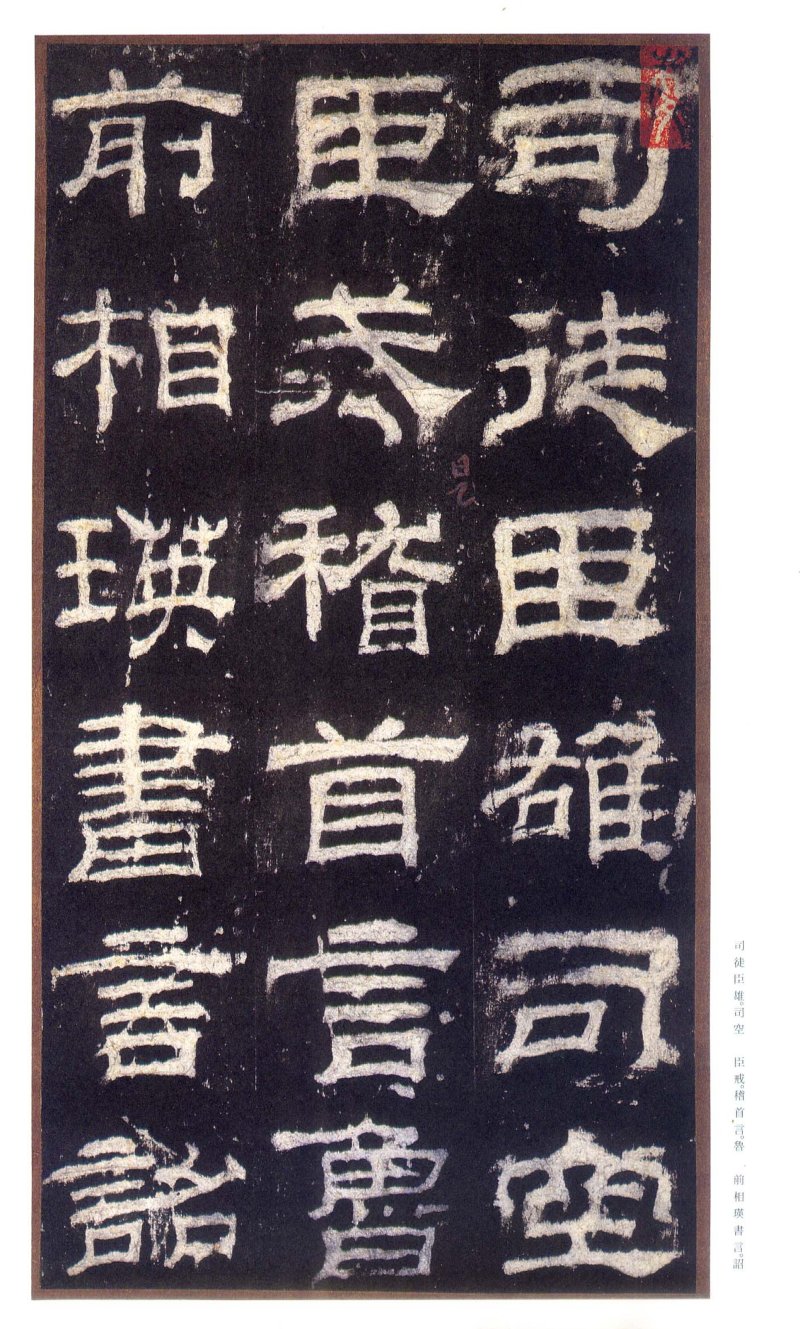 司徒臣雄司空
臣戒稽首言魯
前相瑛書言詔
司徒臣雄。司空　臣戒。稽首言。魯　前相瑛書言。詔